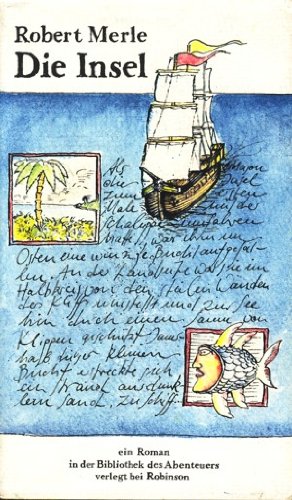 Robert Merle
Die Insel
Als Mason
die Insel
zum
Mal in der
Schaluppe umfahren
hatte, war ihm im
Osten eine winzige Bucht aufgefal-
len. An der Landseite war sie im
Halbkreis von den steilen Wänden
des Kliffs umfaßt und zur See
hin durch einen Saum von
Klippen geschützt. Inner-
halb dieser kleinen
Bucht erstreckte sich
ein Strand aus dunk-
lem Sand. Zu Schiff
ein Roman
in der Bibliothek des Abenteuers
verlegt bei Robinson